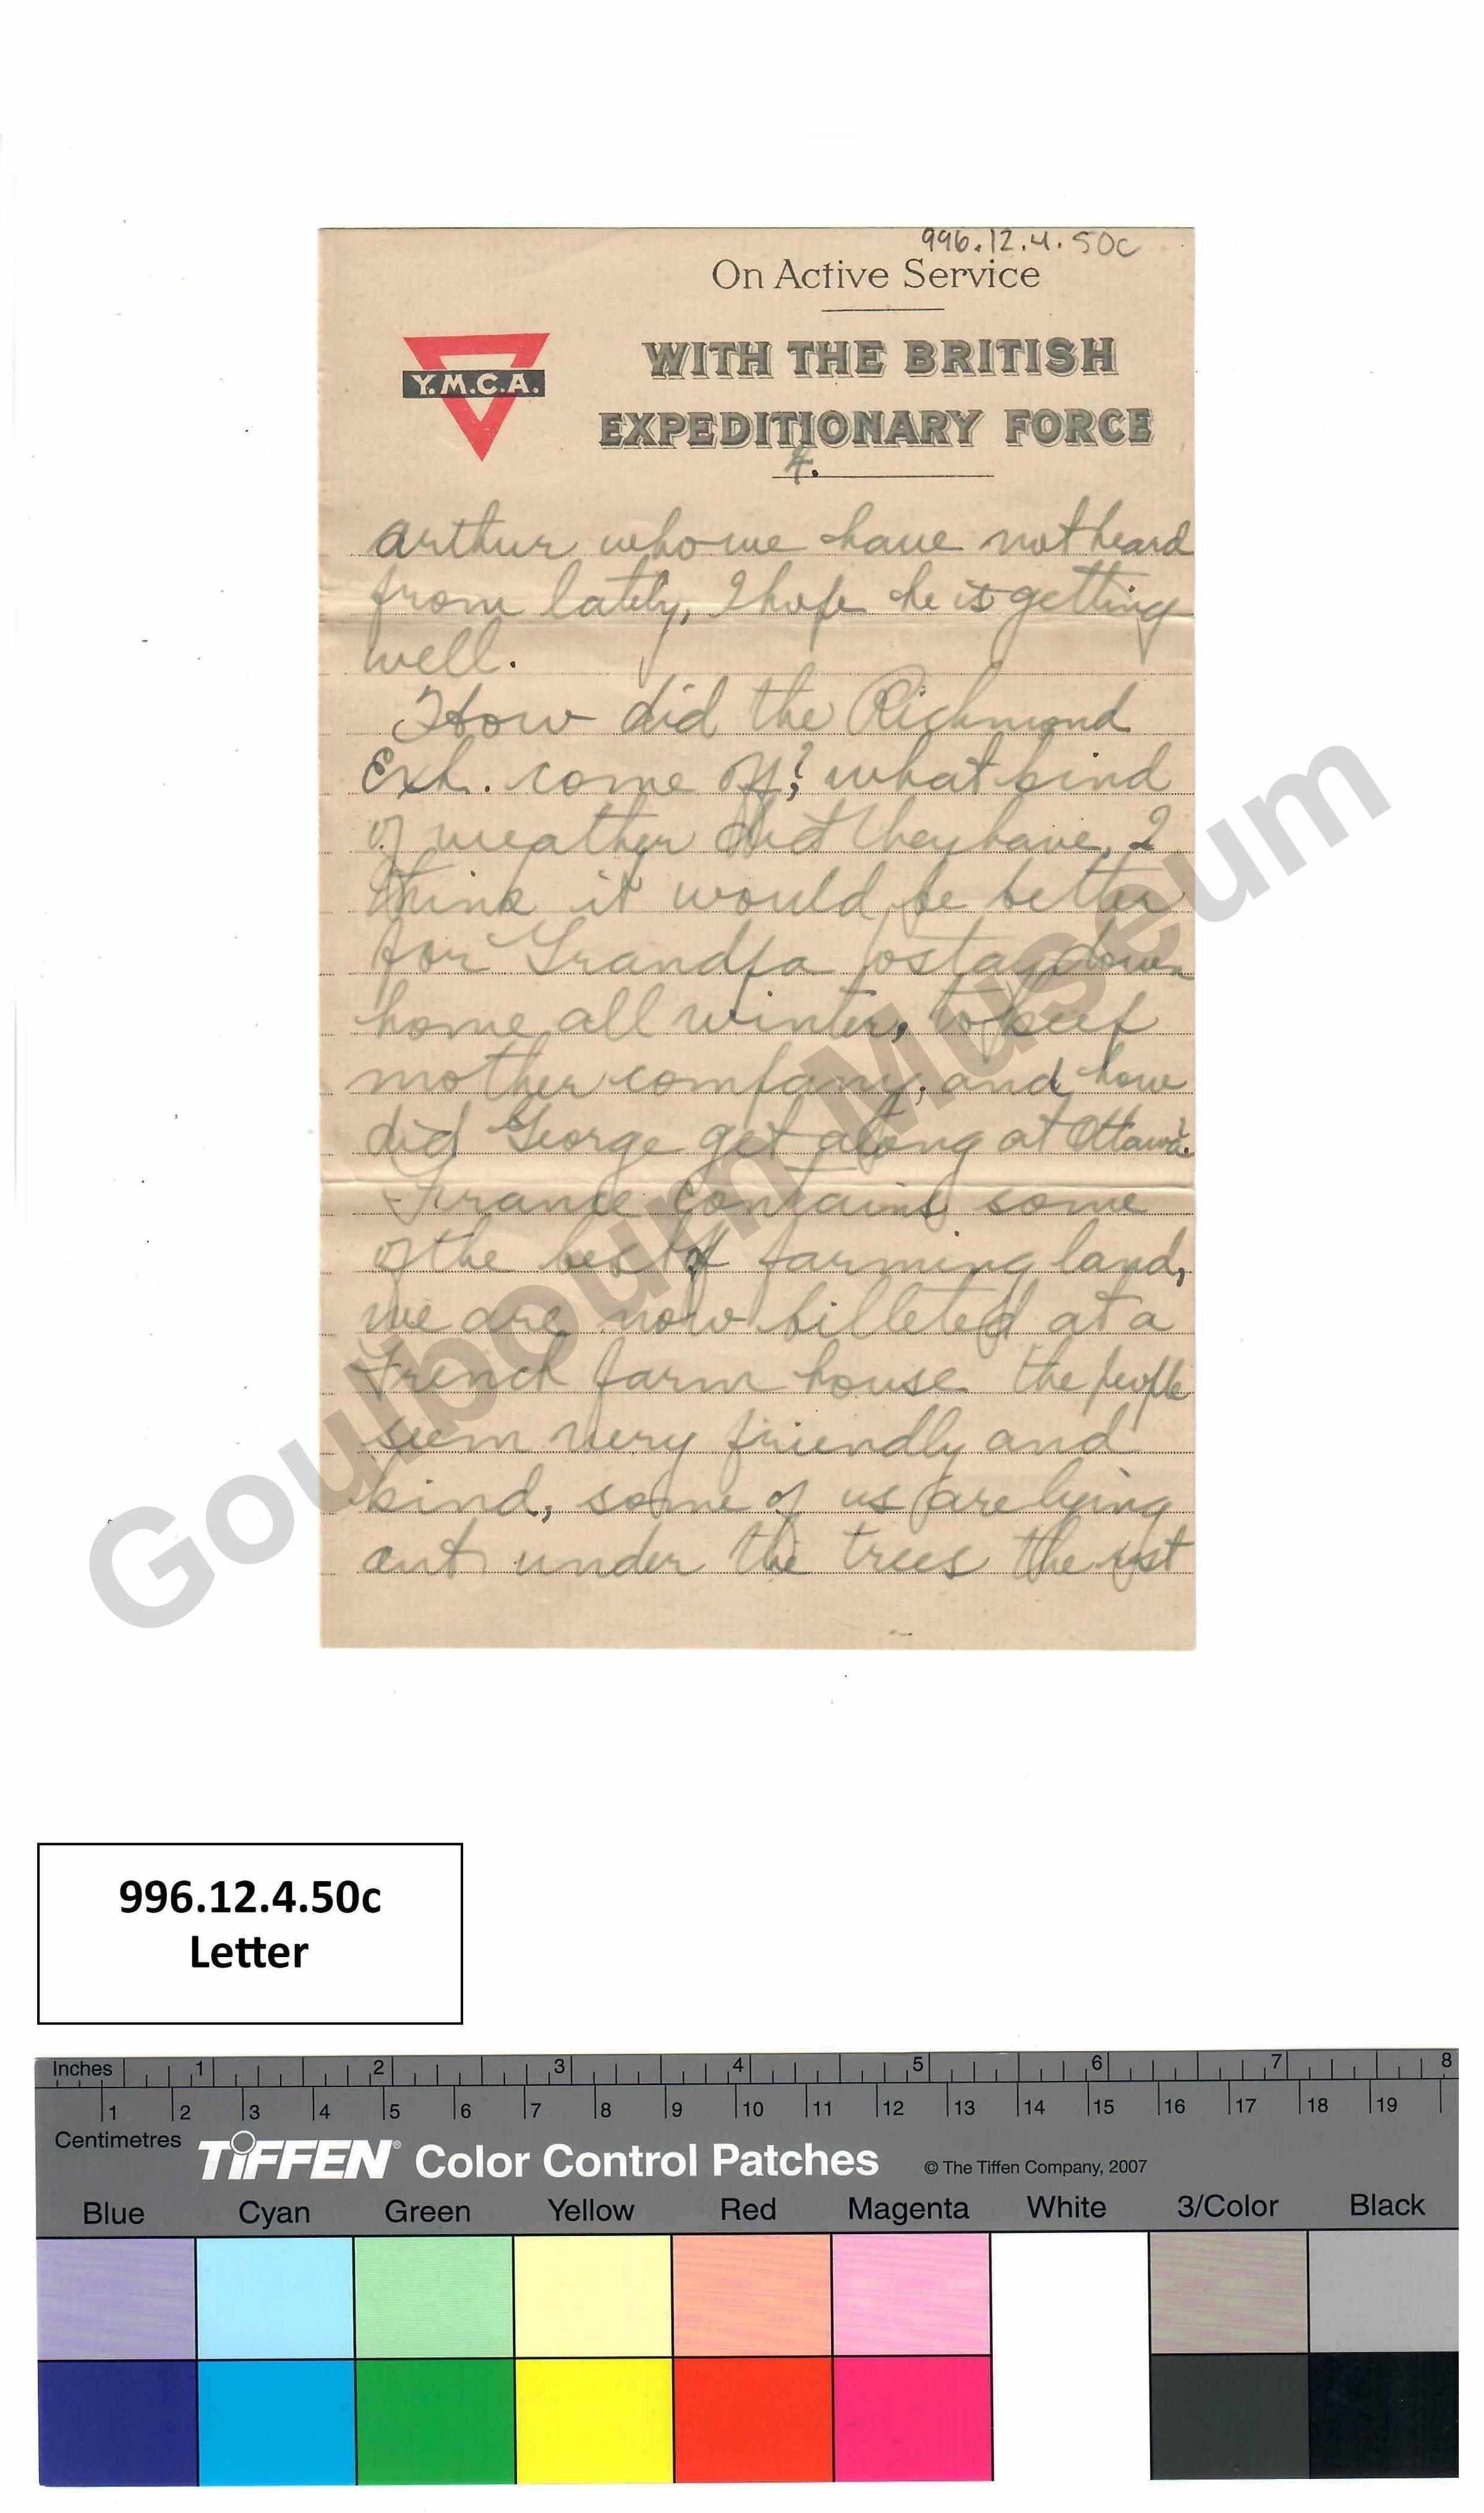 996.12.4.50c
On Active Service
Y.M.C.A.
WITH THE BRITISH
EXPEDITIONARY FORCE
4.
Arthur who we have not heard
from lately, I hope he is getting
well.
How did the Richmond
Exh. come off? what kind
of weather did they have, I
think it would be better
for Grandpa to stay down
home all winter, to keep
mother company, and how
did George get along at Ottawa.
France contains some
of the best of farming land,
we are now billeted at a
French farm house the people
seem very friendly and
kind, some of us are lying
out under the trees the rest
Goulbourn Museum
996.12.4.50c
Letter
Inches 1 2 3 4 5 6 7 8
1 2 3 4 5 6 7 8 9 10 11 12 13 14 15 16 17 18 19
Centimetres
TIFFEN® Color Control Patches © The Tiffen Company, 2007
Blue Cyan Green Yellow Red Magenta White 3/Color Black